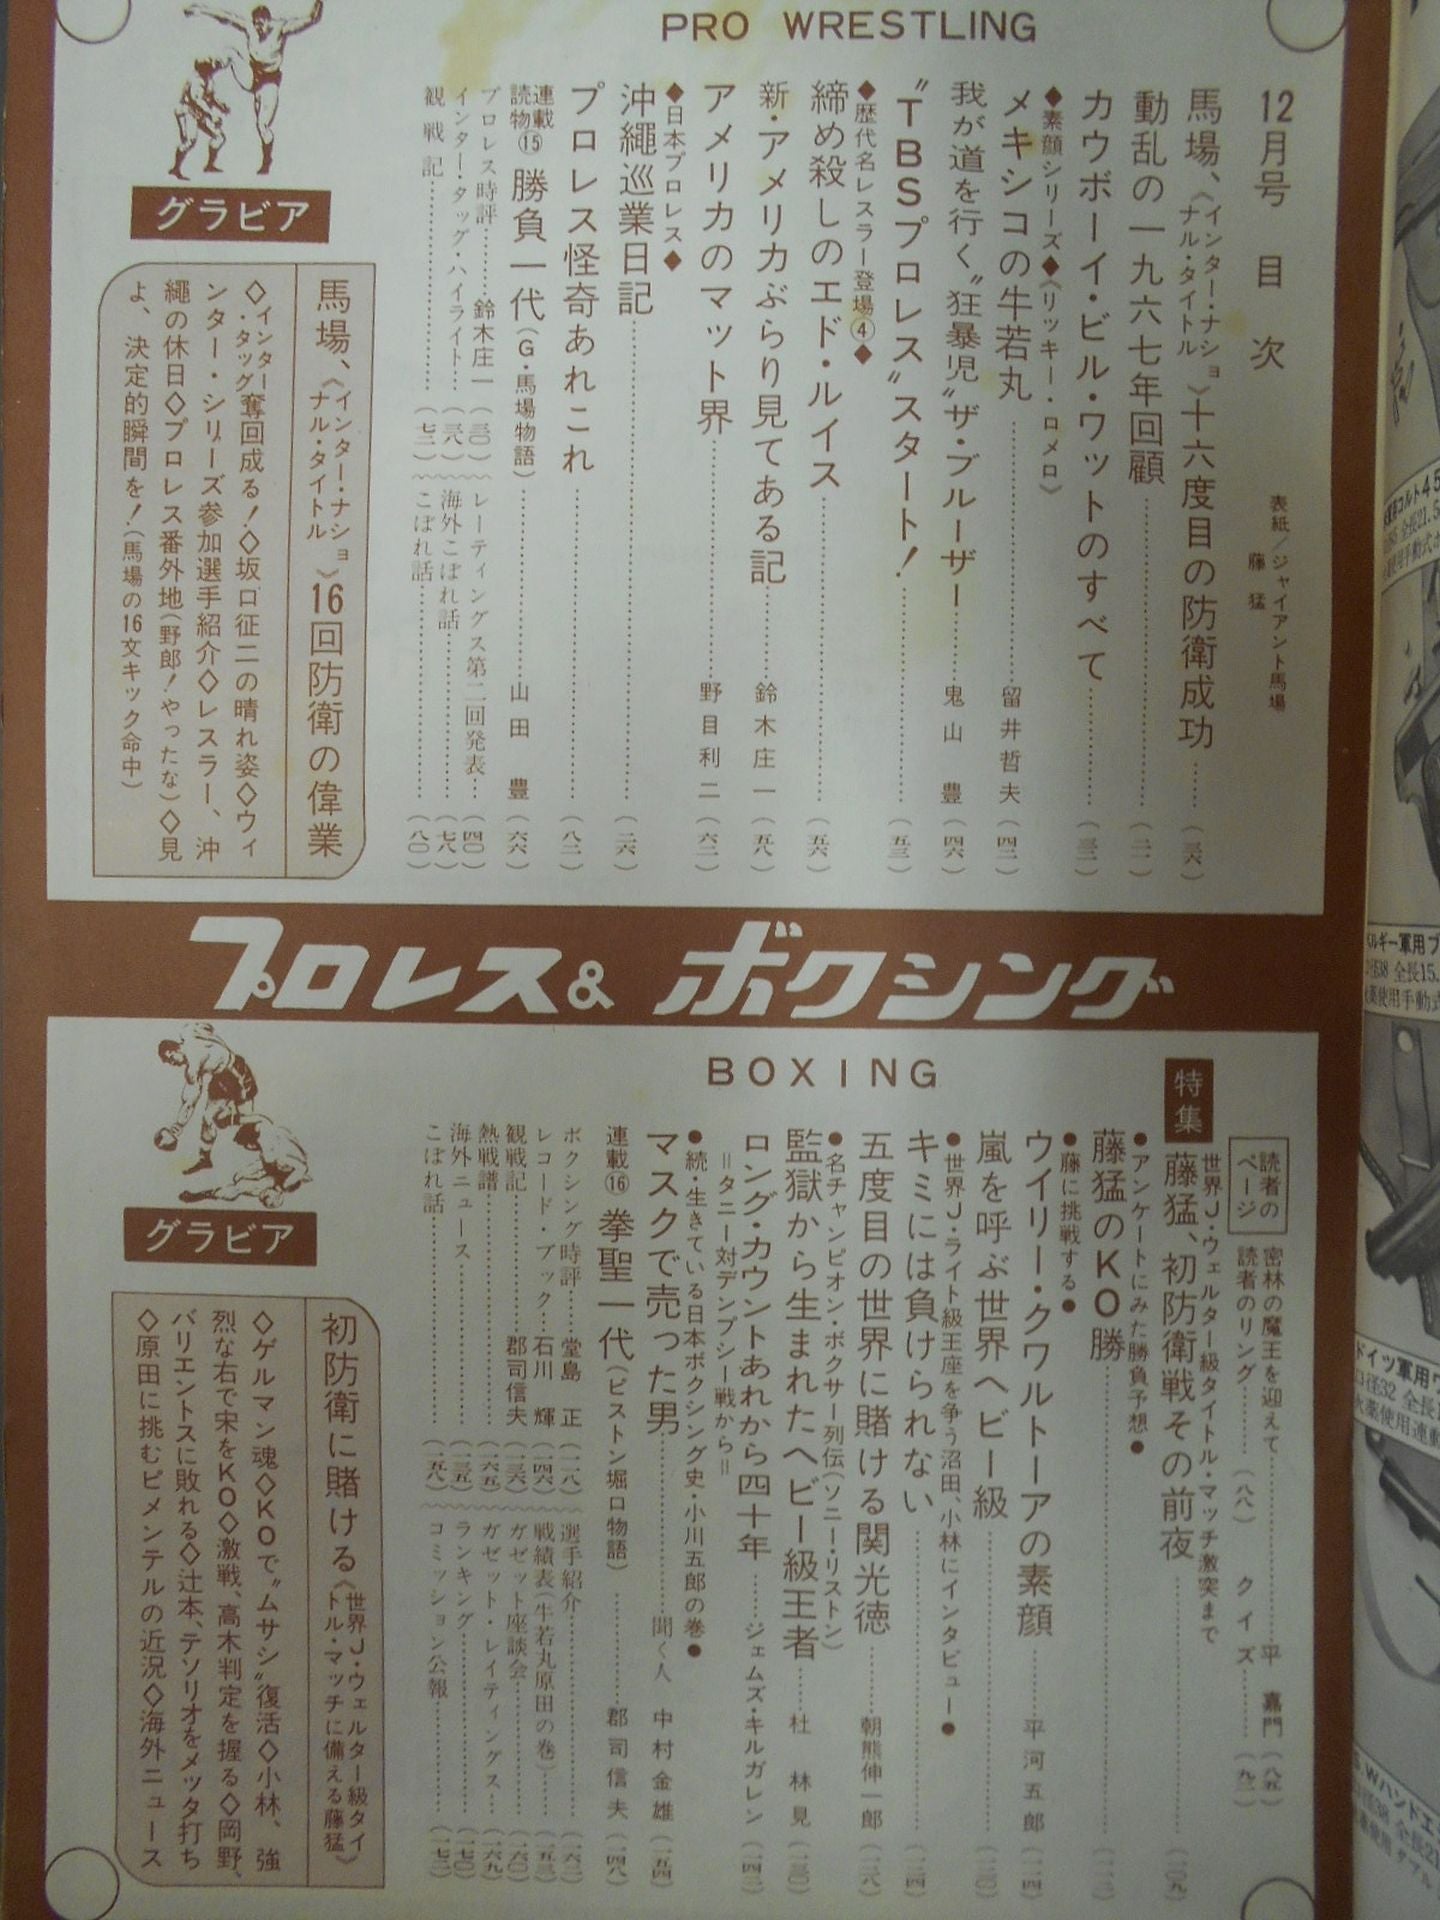 PRO WRESTLING
12月号 目次
表紙/ジャイアント馬場
藤猛
馬場、《インター・ナショナル・タイトル》十六度目の防衛成功……(三六)
動乱の一九六七年回顧……(二一)
カウボーイ・ビル・ワットのすべて……(三二)
◆素顔シリーズ◆《リッキー・ロメロ》
メキシコの牛若丸……留井哲夫(四二)
我が道を行く“狂暴児”ザ・ブルーザー……鬼山豊(四六)
“TBSプロレス”スタート!……(五三)
◆歴代名レスラー登場④◆
締め殺しのエド・ルイス……(五六)
新・アメリカぶらり見てある記……鈴木庄一(五八)
アメリカのマット界……野目利二(六二)
◆日本プロレス◆
沖縄巡業日記……(二六)
プロレス怪奇あれこれ……(八二)
連載読物⑮ 勝負一代(G・馬場物語)……山田豊(六六)
プロレス時評……鈴木庄一(三〇)
インター・タッグ・ハイライト……(三八)
観戦記……(七二)
レーティングス第二回発表……(四〇)
海外こぼれ話……(七八)
こぼれ話……(八〇)
グラビア
馬場、《インター・ナショナル・タイトル》16回防衛の偉業
◇インター・タッグ奪回成る!◇坂口征二の晴れ姿◇ウィ
ンター・シリーズ参加選手紹介◇レスラー、沖
縄の休日◇プロレス番外地(野郎!やったな)◇見
よ、決定的瞬間を!(馬場の16文キック命中)
プロレス&ボクシング
BOXING
読者のページ
密林の魔王を迎えて……平嘉門(八五)
読者のリング……(八八) クイズ……(九二)
特集
世界J・ウェルター級タイトル・マッチ激突まで
藤猛、初防衛戦その前夜……(一〇九)
●アンケートにみた勝負予想●
藤猛のKO勝……(一一二)
●藤に挑戦する●
ウイリー・クワルトーアの素顔……平河五郎(一一四)
嵐を呼ぶ世界ヘビー級……(一二〇)
●世界J・ライト級王座を争う沼田、小林にインタビュー●
キミには負けられない……(一二四)
五度目の世界に賭ける関光徳……朝熊伸一郎(一二八)
●名チャンピオン・ボクサー列伝(ソニー・リストン)
監獄から生まれたヘビー級王者……杜林見(一三〇)
ロング・カウントあれから四十年……ジェムズ・キルガレン(一四二)
=タニー対デンプシー戦から=
●続・生きている日本ボクシング史・小川五郎の巻●
マスクで売った男……聞く人 中村金雄(一五四)
連載⑯ 拳聖一代(ピストン堀口物語)……郡司信夫(一四八)
ボクシング時評……堂島正(一一八)
レコード・ブック…石川輝(一四六)
観戦記……郡司信夫(一三六)
熱戦譜……(一六五)
海外ニュース……(一三五)
こぼれ話……(一五八)
選手紹介……(一六二)
戦績表(牛若丸原田の巻)……(一五三)
ガゼット座談会……(一六〇)
ガゼット・レイティングス……(一六九)
ランキング……(一七〇)
コミッション公報……(一七二)
グラビア
初防衛に賭ける《世界J・ウェルター級タイトル・マッチに備える藤猛》
◇ゲルマン魂◇KOで“ムサシ”復活◇小林、強
烈な右で宋をKO◇激戦、高木判定を握る◇岡野、
バリエントスに敗れる◇辻本、テソリオをメッタ打ち
◇原田に挑むピメンテルの近況◇海外ニュース